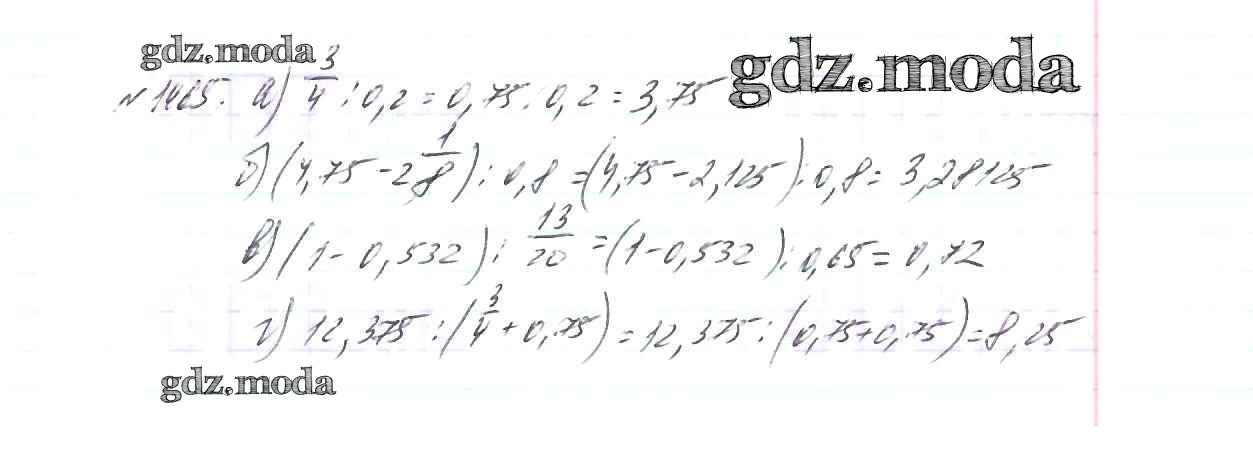 gdz.moda
gdz.moda
№1465. а) 3/4 : 0,2 = 0,75 : 0,2 = 3,75
б) (4,75 - 2 1/8) : 0,8 = (4,75 - 2,125) : 0,8 = 3,28125
в) (1 - 0,532) : 13/20 = (1 - 0,532) : 0,65 = 0,72
г) 12,375 : (3/4 + 0,75) = 12,375 : (0,75 + 0,75) = 8,25
gdz.moda